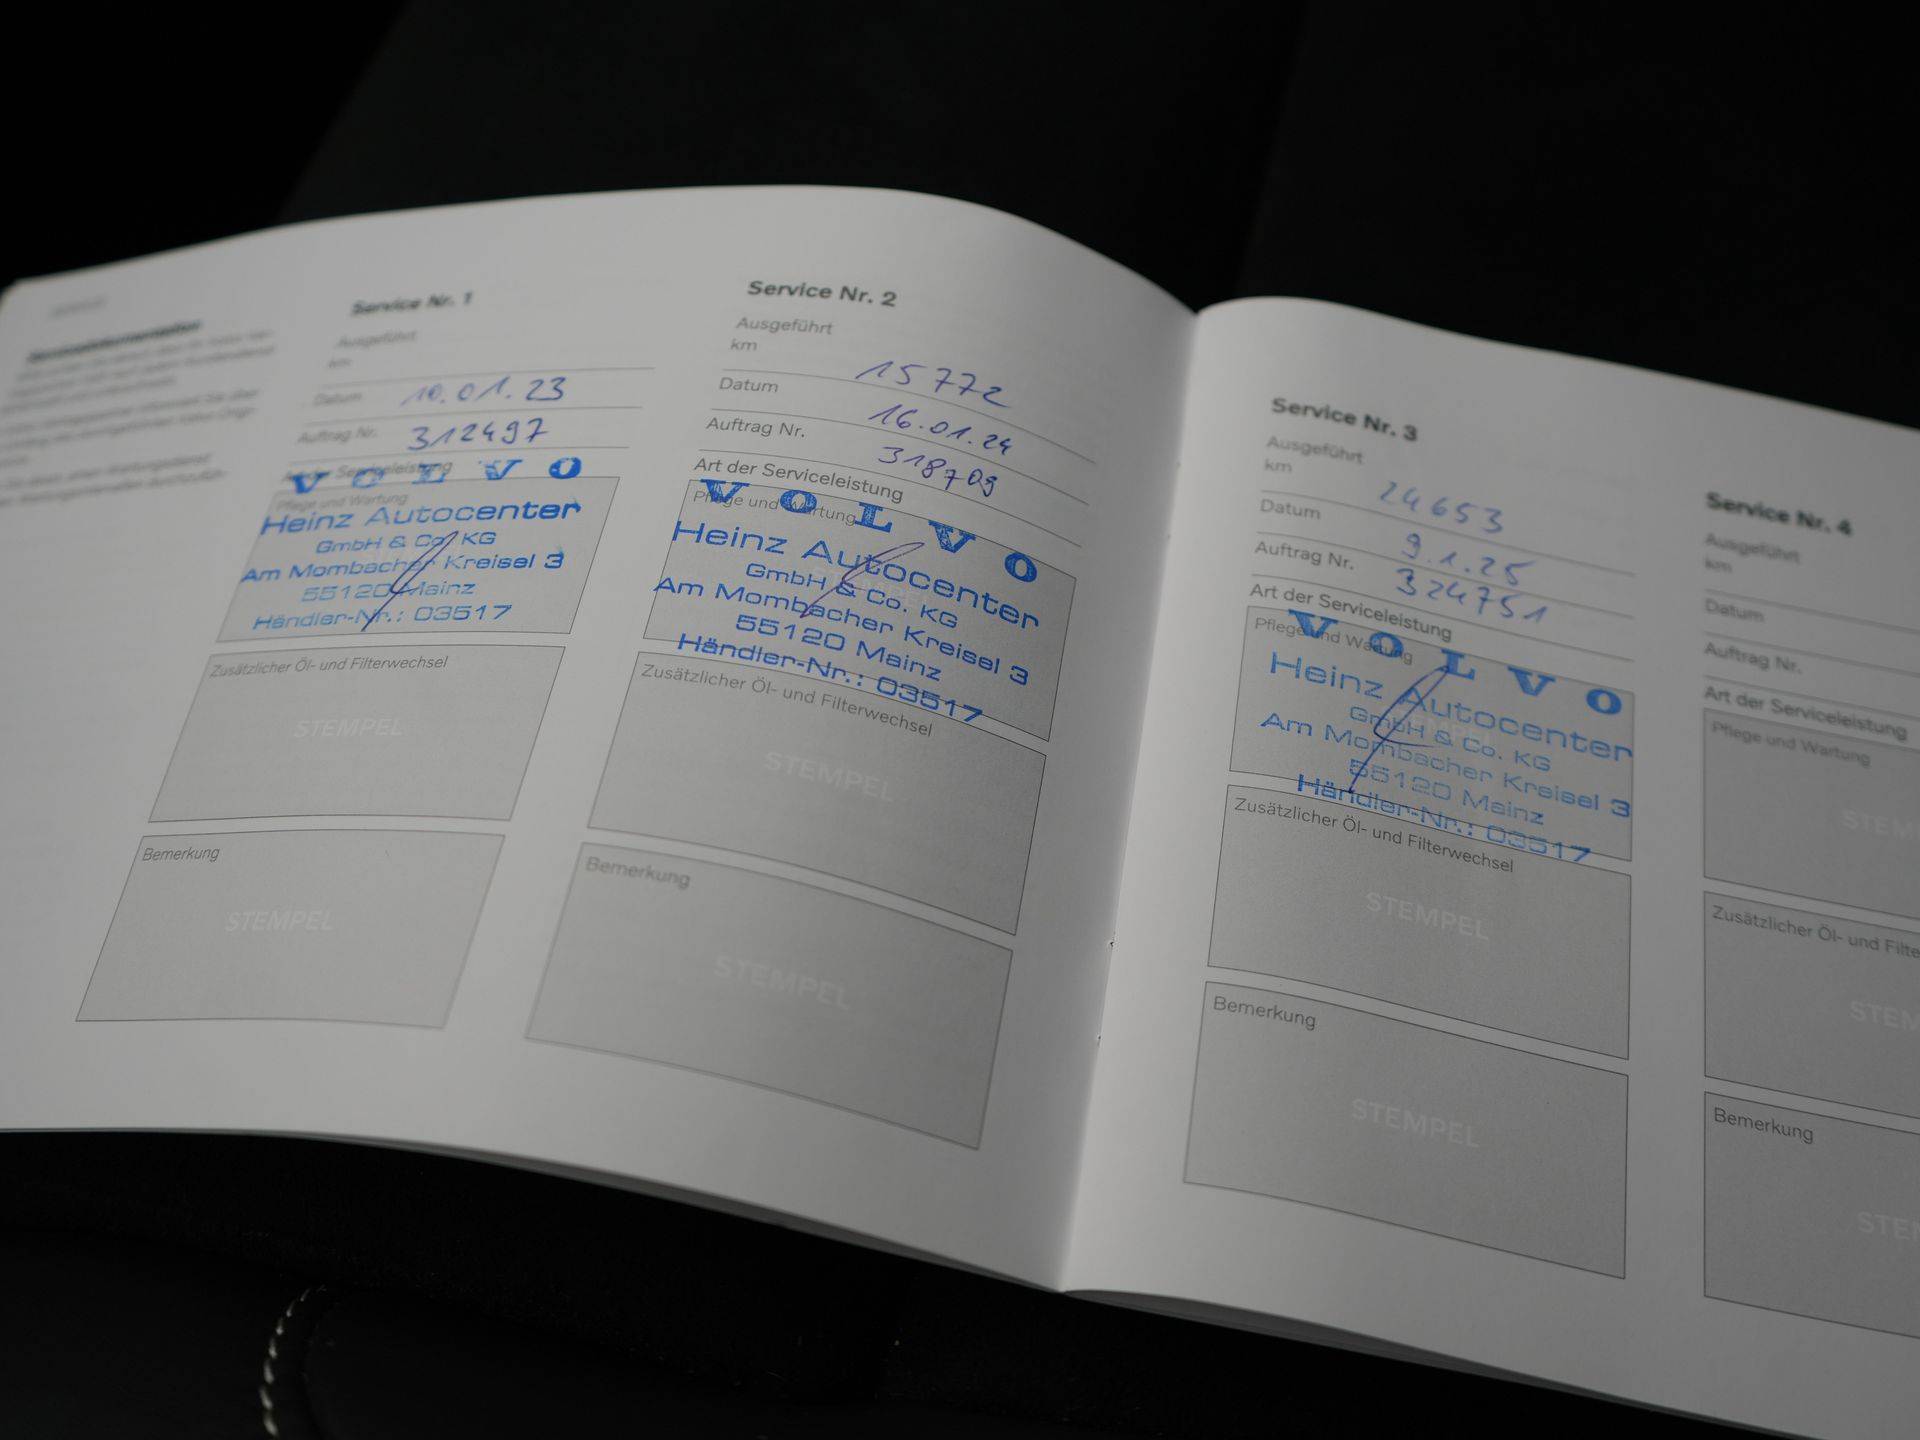 Service Nr. 1
Ausgeführt
km
Datum 10.01.23
Auftrag Nr. 312497
Art der Serviceleistung
VOLVO
Pflege und Wartung
Heinz Autocenter
GmbH & Co. KG
Am Mombacher Kreisel 3
55120 Mainz
Händler-Nr.: 03517
Zusätzlicher Öl- und Filterwechsel
STEMPEL
Bemerkung
STEMPEL
Service Nr. 2
Ausgeführt
km 15772
Datum 16.01.24
Auftrag Nr. 318709
Art der Serviceleistung
VOLVO
Pflege und Wartung
Heinz Autocenter
GmbH & Co. KG
Am Mombacher Kreisel 3
55120 Mainz
Händler-Nr.: 03517
Zusätzlicher Öl- und Filterwechsel
STEMPEL
Bemerkung
STEMPEL
Service Nr. 3
Ausgeführt
km 24653
Datum 9.1.25
Auftrag Nr. 324751
Art der Serviceleistung
VOLVO
Pflege und Wartung
Heinz Autocenter
GmbH & Co. KG
Am Mombacher Kreisel 3
55120 Mainz
Händler-Nr.: 03517
Zusätzlicher Öl- und Filterwechsel
STEMPEL
Bemerkung
STEMPEL
Service Nr. 4
Ausgeführt
km
Datum
Auftrag Nr.
Art der Serviceleistung
Pflege und Wartung
STEM
Zusätzlicher Öl- und Filte
STEM
Bemerkung
STE